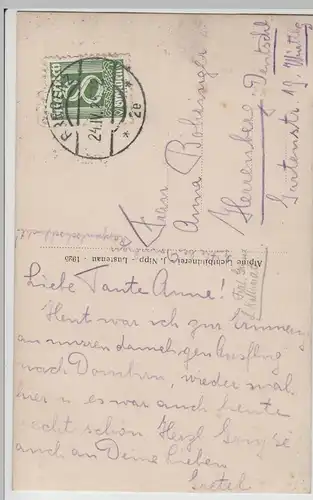 BREGENZ
24.IV.
* 2e *
Frau
Anna Böheinger
Herrenberg-Deutschl
Gartenstr. 19. Württbg
Alpine Lichtbildnerei J. Nipp, Lustenau 1929
Liebe Tante Anne!
Heut war ich zur Erinnerung
an unseren damaligen Ausflug
nach Dornbirn, wieder mal
hier u. es war auch heute
echt schön Herzl. Grüsse
auch an Deine Lieben
Gretel